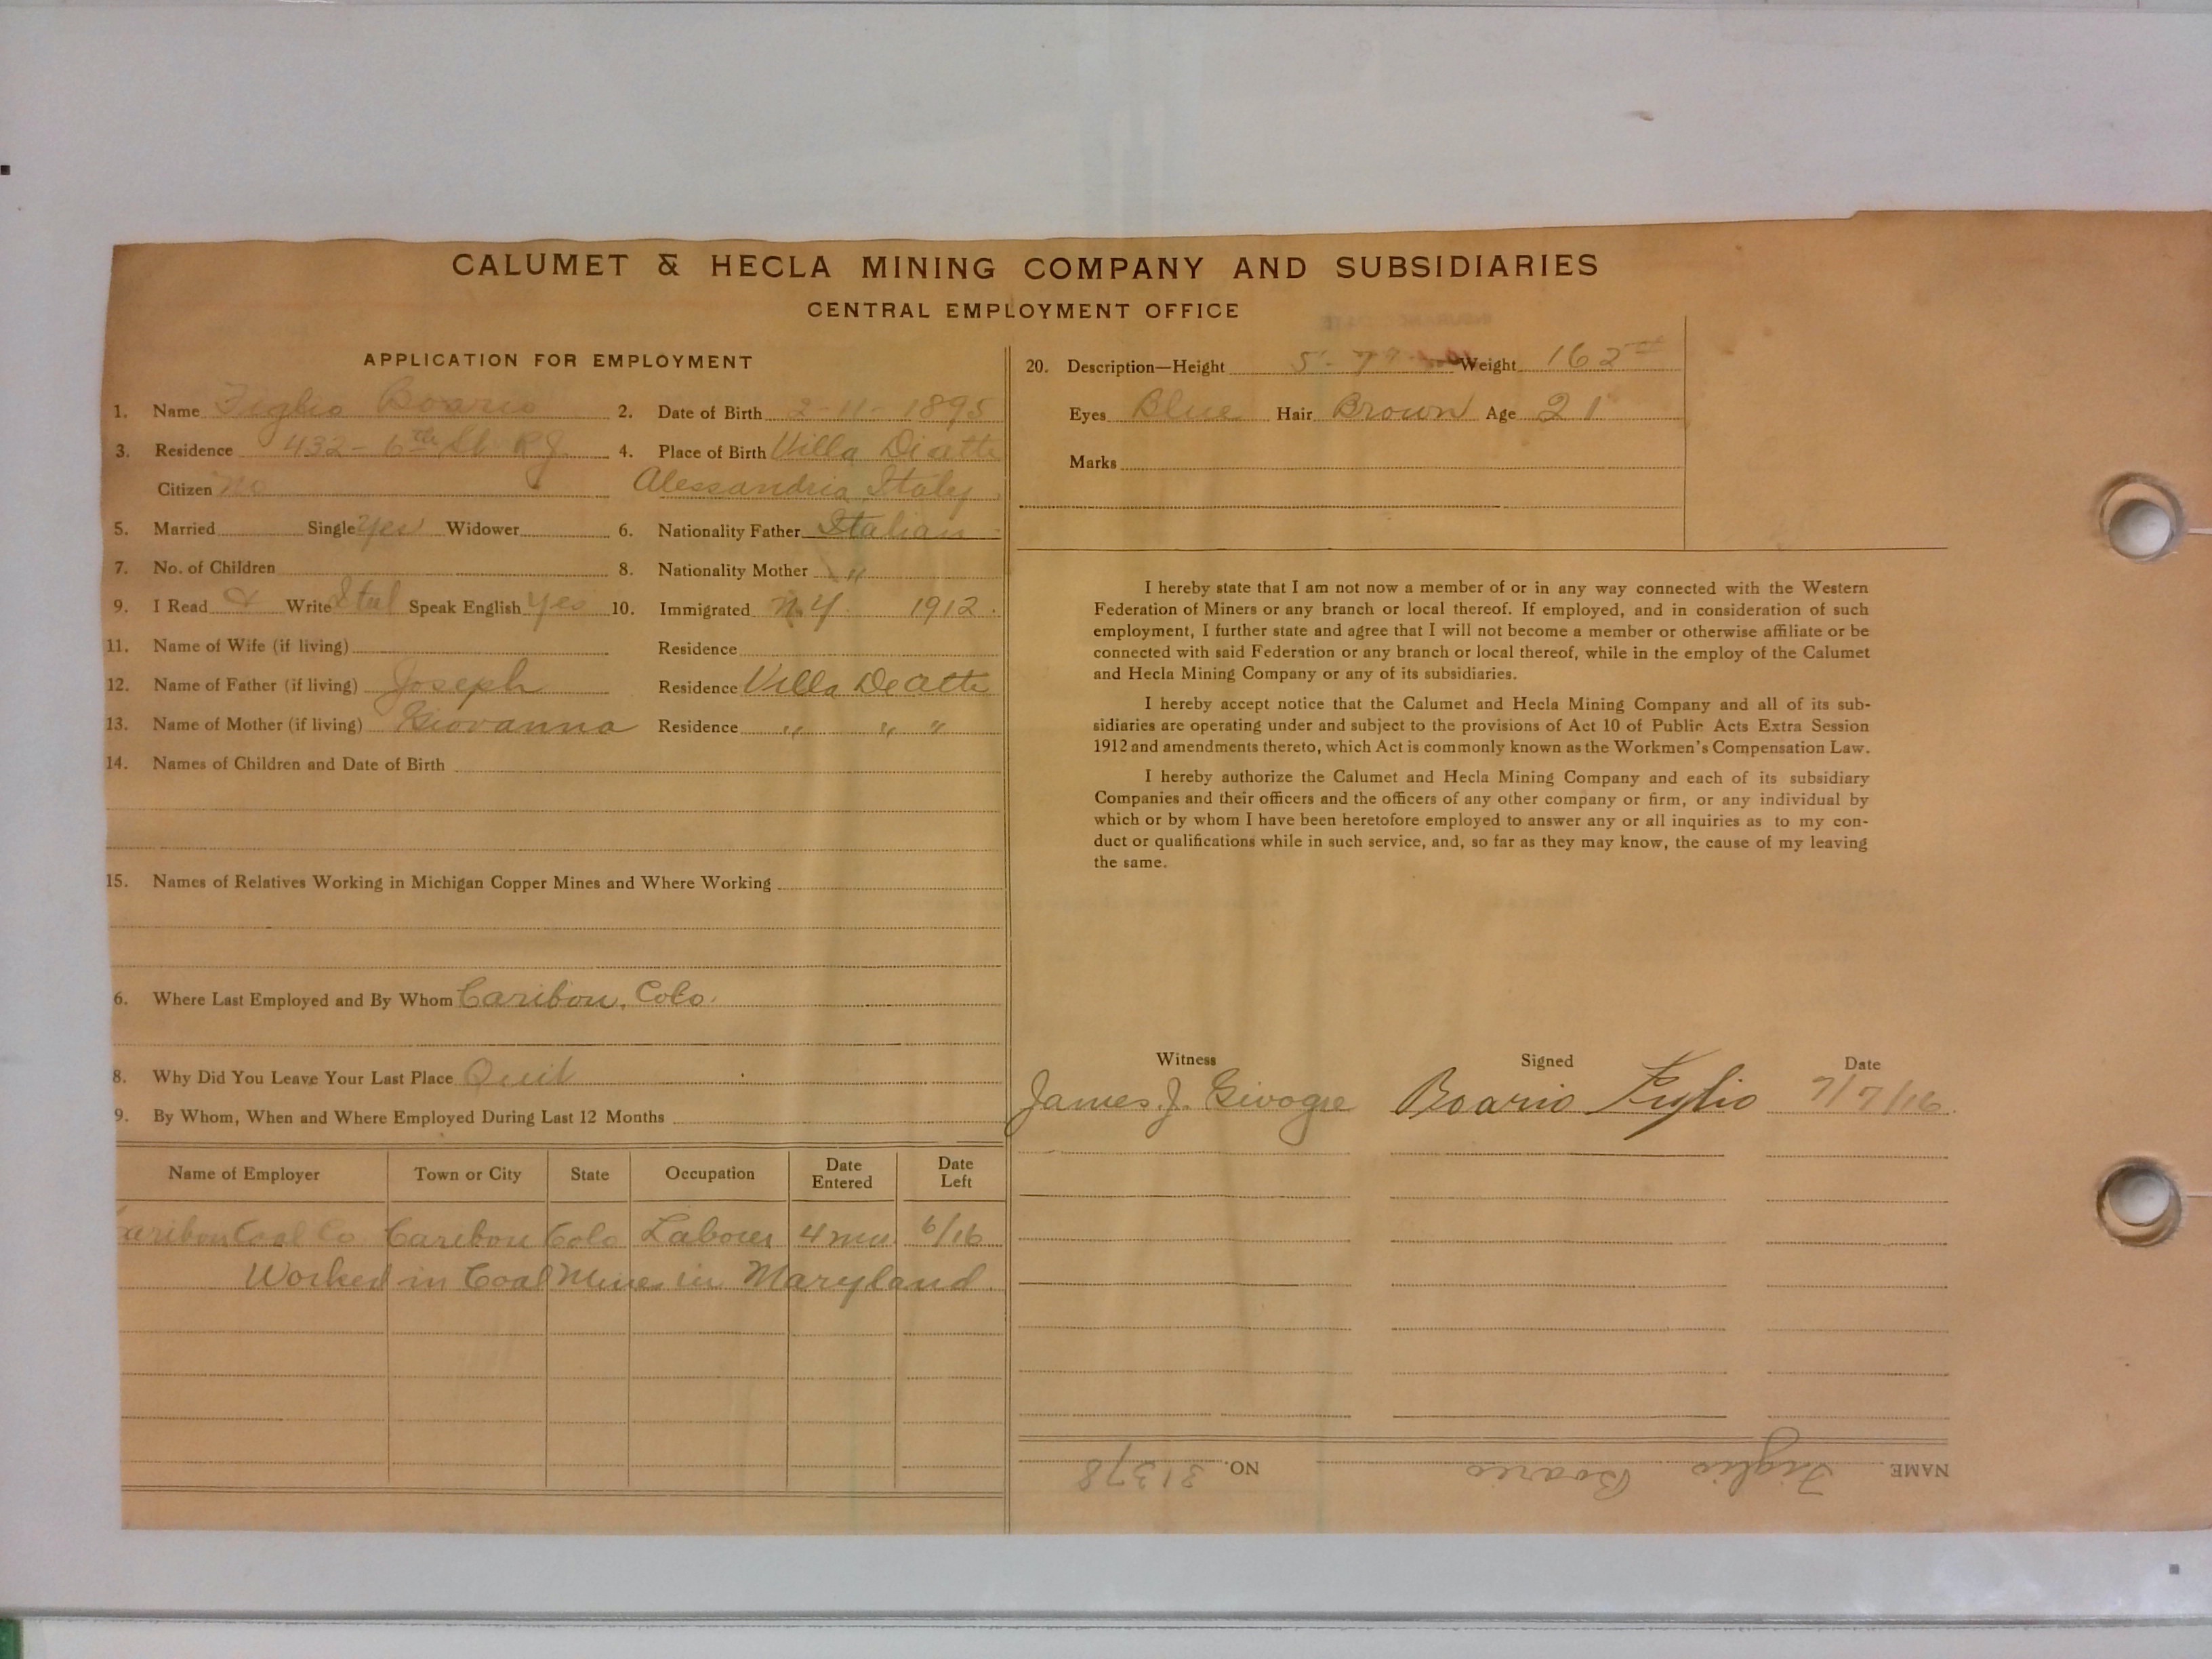 CALUMET & HECLA MINING COMPANY AND SUBSIDIARIES
CENTRAL EMPLOYMENT OFFICE
APPLICATION FOR EMPLOYMENT
1. Name Figlio Boario 2. Date of Birth 2-11-1895
3. Residence 432-6th St. R.J. 4. Place of Birth Villa Diatti
Citizen No Alessandria Italy
5. Married Single Yes Widower 6. Nationality Father Italian
7. No. of Children 8. Nationality Mother "
9. I Read & Write Ital Speak English Yes 10. Immigrated N.Y. 1912.
11. Name of Wife (if living) Residence
12. Name of Father (if living) Joseph Residence Villa De Atti
13. Name of Mother (if living) Giovanna Residence " " "
14. Names of Children and Date of Birth
15. Names of Relatives Working in Michigan Copper Mines and Where Working
6. Where Last Employed and By Whom Caribou, Colo.
8. Why Did You Leave Your Last Place Quit
9. By Whom, When and Where Employed During Last 12 Months
Name of Employer Town or City State Occupation Date Entered Date Left
Caribou Coal Co Caribou Colo Laborer 4 mn 6/16
Worked in Coal Mines in Maryland.
20. Description—Height 5-7 Weight 162#
Eyes Blue Hair Brown Age 21
Marks
I hereby state that I am not now a member of or in any way connected with the Western
Federation of Miners or any branch or local thereof. If employed, and in consideration of such
employment, I further state and agree that I will not become a member or otherwise affiliate or be
connected with said Federation or any branch or local thereof, while in the employ of the Calumet
and Hecla Mining Company or any of its subsidiaries.
I hereby accept notice that the Calumet and Hecla Mining Company and all of its sub-
sidiaries are operating under and subject to the provisions of Act 10 of Public Acts Extra Session
1912 and amendments thereto, which Act is commonly known as the Workmen's Compensation Law.
I hereby authorize the Calumet and Hecla Mining Company and each of its subsidiary
Companies and their officers and the officers of any other company or firm, or any individual by
which or by whom I have been heretofore employed to answer any or all inquiries as to my con-
duct or qualifications while in such service, and, so far as they may know, the cause of my leaving
the same.
Witness Signed Date
James J. Givogre Boario Figlio 7/7/16
NAME Figlio Boario NO. 31378